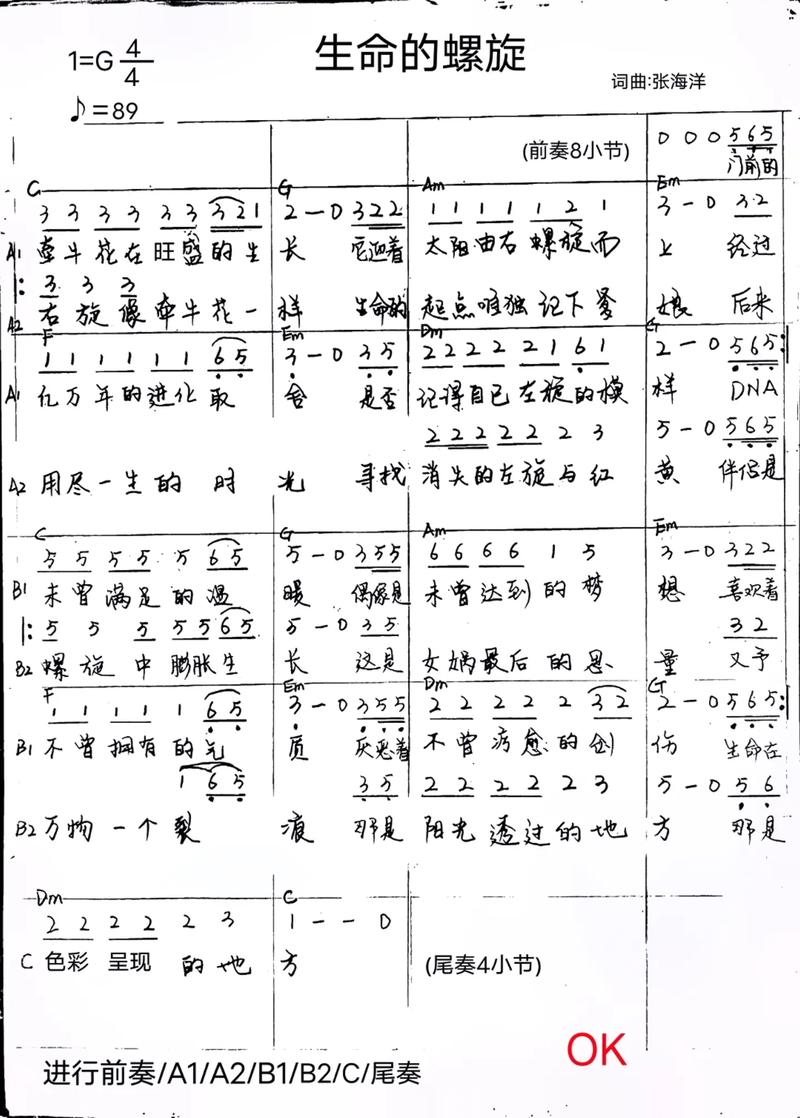 生命的螺旋
1=G 4/4
词曲:张海洋
♪=89
(前奏8小节) 0 0 0 5 6 5
门前的
C G Am Em
3 3 3 3 3 3 3 2 1 2 - 0 3 2 2 1 1 1 1 1 2 1 3 - 0 3 2
A1 牵牛花在旺盛的生 长 它迎着 太阳由右螺旋而 上 经过
3 3 3
A2 右旋像牵牛花一 样 生命的 起点唯独记下爹 娘 后来
F Em Dm G
1 1 1 1 1 1 6 5 3 - 0 3 5 2 2 2 2 2 1 6 1 2 - 0 5 6 5
A1 亿万年的进化取 舍 是否 记得自己左旋的模 样 DNA
2 2 2 2 2 2 3 5 - 0 5 6 5
A2 用尽一生的时 光 寻找 消失的左旋与红 黄 伴侣是
C G Am Em
5 5 5 5 5 6 5 5 - 0 3 5 5 6 6 6 6 1 5 3 - 0 3 2 2
B1 未曾满足的温 暖 偶像是 未曾达到的梦 想 喜欢着
5 5 5 5 5 6 5 5 - 0 3 5 3 2
B2 螺旋中膨胀生 长 这是 女娲最后的恩 量 又予
F Em Dm G
1 1 1 1 1 6 5 3 - 0 3 5 5 2 2 2 2 2 3 2 2 - 0 5 6 5
B1 不曾拥有的 质 厌恶着 不曾痊愈的创 伤 生命在
1 6 5 3 5 2 2 2 2 2 3 5 - 0 5 6
B2 万物一个裂 痕 那是 阳光透过的地 方 那是
Dm C
2 2 2 2 2 3 1 - - 0
C 色彩 呈现 的地 方 (尾奏4小节)
OK
进行前奏/A1/A2/B1/B2/C/尾奏